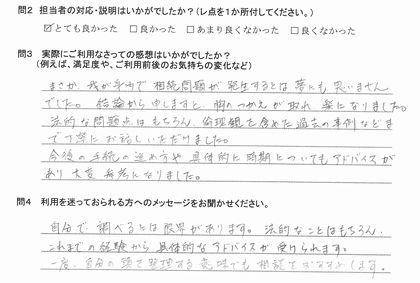 問2 担当者の対応・説明はいかがでしたか?(レ点を1か所付してください。)
☑とても良かった □良かった □あまり良くなかった □良くなかった
問3 実際にご利用なさっての感想はいかがでしたか?
(例えば、満足度や、ご利用前後のお気持ちの変化など)
まさか、我が家で相続問題が発生するとは夢にも思いません
でした。結論から申しますと、胸のつかえが取れ楽になりました。
法的な問題点はもちろん、倫理観を含めた過去の事例などま
で丁寧にお話しいただけました。
今後の手続の進め方や具体的に時期についてもアドバイスが
あり大変参考になりました。
問4 利用を迷っておられる方へのメッセージをお聞かせください。
自分で調べるには限界があります。法的なことはもちろん、
これまでの経験から具体的なアドバイスが受けられます。
一度、自分の頭で整理する意味でも相談をおすすめします。